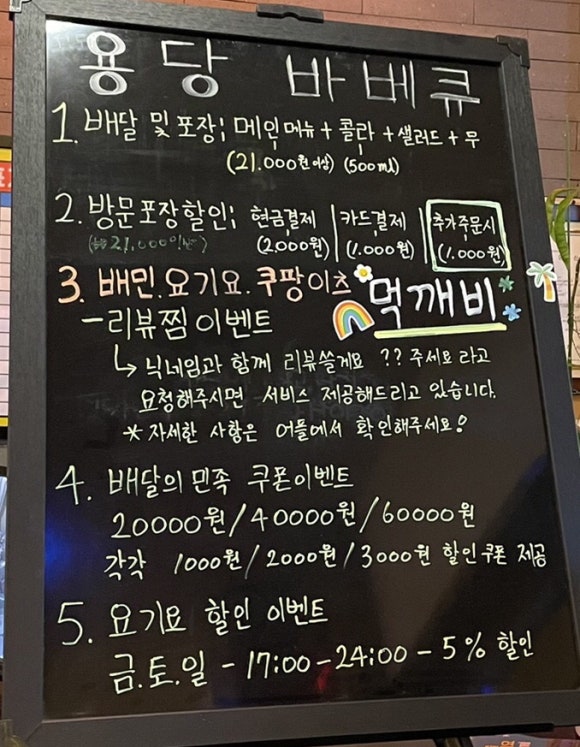 용당 바베큐
1. 배달 및 포장; 메인메뉴 + 콜라 + 샐러드 + 무
(21.000원이상) (500ml)
2. 방문포장할인; 현금결제 | 카드결제 | 추가주문시
(₩21,000이상) (2.000원) (1.000원) (1.000원)
3. 배민.요기요.쿠팡이츠 먹깨비
- 리뷰찜 이벤트
↳ 닉네임과 함께 리뷰쓸게요 ?? 주세요 라고
요청해주시면 서비스 제공해드리고 있습니다.
* 자세한 사항은 어플에서 확인해주세요!
4. 배달의민족 쿠폰이벤트
20000원/40000원/60000원
각각 1000원/2000원/3000원 할인쿠폰 제공
5. 요기요 할인 이벤트
금.토.일 - 17:00 - 24:00 - 5% 할인